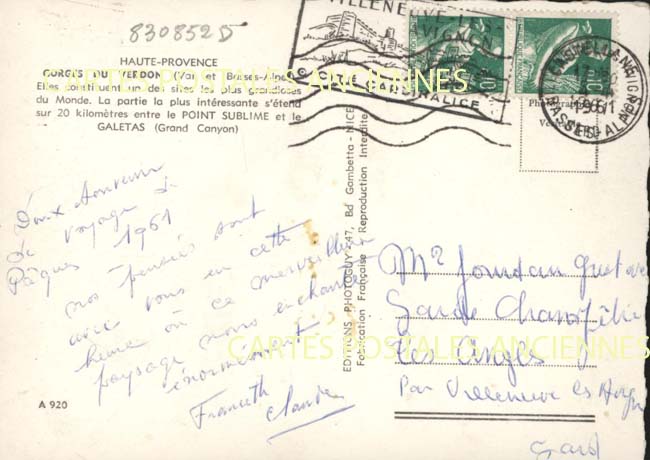 8308525
HAUTE-PROVENCE
GORGES DU VERDON (Var - Basses-Alpes)
Elles constituent un des sites les plus grandioses
du Monde. La partie la plus intéressante s'étend
sur 20 kilomètres entre le POINT SUBLIME et le
GALETAS (Grand Canyon)
CARTES POSTALES ANCIENNES
VILLENEUVE-LES-
AVIGNON
CITÉ CARDINALICE
1961
BASSES-ALPES
Doux souvenir
de voyage de
Pâques 1961
nos pensées sont
avec vous en cette
heure où ce merveilleux
paysage nous enchante
énormément
Claude
A 920
EDITIONS PHOTOGUY - 47, Bd Gambetta - NICE
Fabrication Française - Reproduction Interdite
Mr Jourdan Gustave
Garde
Les Angles
Par Villeneuve les Avign
Gard
CARTES POSTALES ANCIENNES